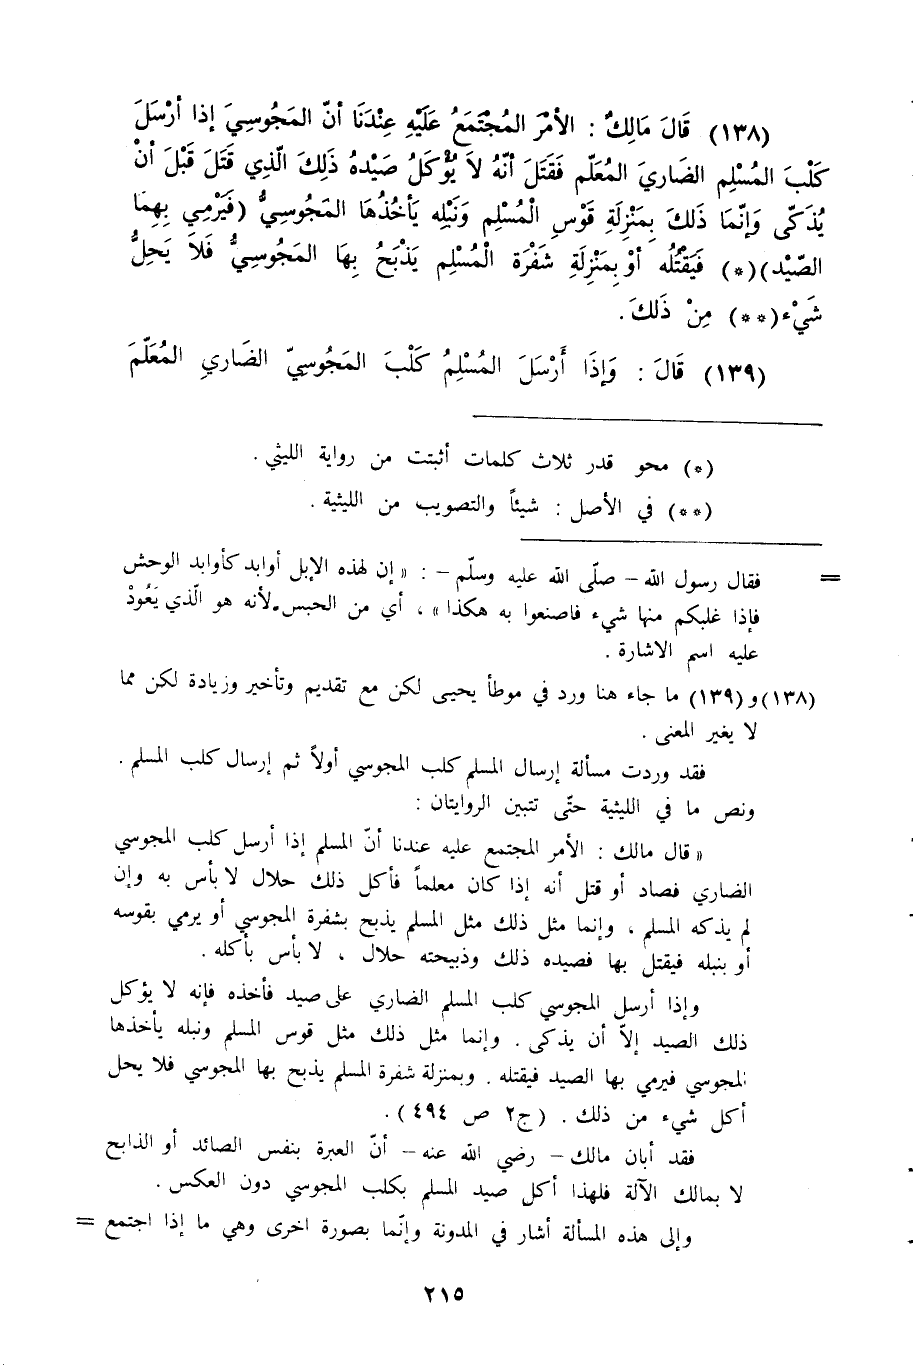 (١٣٨) قَالَ مَالِكٌ : الأمْرُ المُجْتَمَعُ عَلَيْهِ عِنْدَنَا أنّ المَجُوسِيَ إذا أرْسَلَ
كَلْبَ المُسْلِمِ الضَاريَ المُعَلّم فَقَتَلَ أنّهُ لاَ يُؤْكَلُ صَيْدهُ ذلِكَ الّذِي قَتَلَ قَبْلَ أنْ
يُذَكّى وَإنّمَا ذَلكَ بِمَنْزِلَةِ قَوْسِ الْمُسْلِمِ وَنَبْلِه يَأخُذُهَا المَجُوسِيُّ (فَيَرْمِي بِهِمَا
الصّيْد)(*) فَيَقْتُلُه أوْ بِمَنْزِلَةِ شَفْرَة الْمُسْلِم يَذْبَحُ بِهَا المَجُوسِيُّ فَلاَ يَحِلُّ
شَيْء(**) مِنْ ذَلكَ .
(١٣٩) قَالَ : وَإذَا أَرْسَلَ المُسْلِمُ كَلْبَ المَجُوسِيّ الضَاري المُعَلّمَ
(*) محو قدر ثلاث كلمات أثبتت من رواية الليثي .
(**) في الأصل : شيئاً والتصويب من الليثية .
= فقال رسول الله – صلّى الله عليه وسلّم – : « إن لهذه الإبل أوابد كأوابد الوحش
فإذا غلبكم منها شيء فاصنعوا به هكذا » ، أي من الحبس. لأنه هو الّذي يَعُودْ
عليه اسم الاشارة .
(١٣٨) و (١٣٩) ما جاء هنا ورد في موطأ يحيى لكن مع تقديم وتأخير وزيادة لكن مما
لا يغير المعنى .
فقد وردت مسألة إرسال المسلم كلب المجوسي أولاً ثم إرسال كلب المسلم .
ونص ما في الليثية حتّى تتبين الروايتان :
« قال مالك : الأمر المجتمع عليه عندنا أنّ المسلم إذا أرسل كلب المجوسي
الضاري فصاد أو قتل أنه إذا كان معلماً فأكل ذلك حلال لا بأس به وإن
لم يذكه المسلم ، وإنما مثل ذلك مثل المسلم يذبح بشفرة المجوسي أو يرمي بقوسه
أو بنبله فيقتل بها فصيده ذلك وذبيحته حلال ، لا بأس بأكله .
وإذا أرسل المجوسي كلب المسلم الضاري على صيد فأخذه فإنه لا يؤكل
ذلك الصيد إلاّ أن يذكى . وإنما مثل ذلك مثل قوس المسلم ونبله يأخذها
المجوسي فيرمي بها الصيد فيقتله . وبمنزلة شفرة المسلم يذبح بها المجوسي فلا يحل
أكل شيء من ذلك . (ج٢ ص ٤٩٤) .
فقد أبان مالك – رضي الله عنه – أنّ العبرة بنفس الصائد أو الذابح
لا بمالك الآلة فلهذا أكل صيد المسلم بكلب المجوسي دون العكس .
وإلى هذه المسألة أشار في المدونة وإنّما بصورة اخرى وهي ما إذا اجتمع =
٢١٥